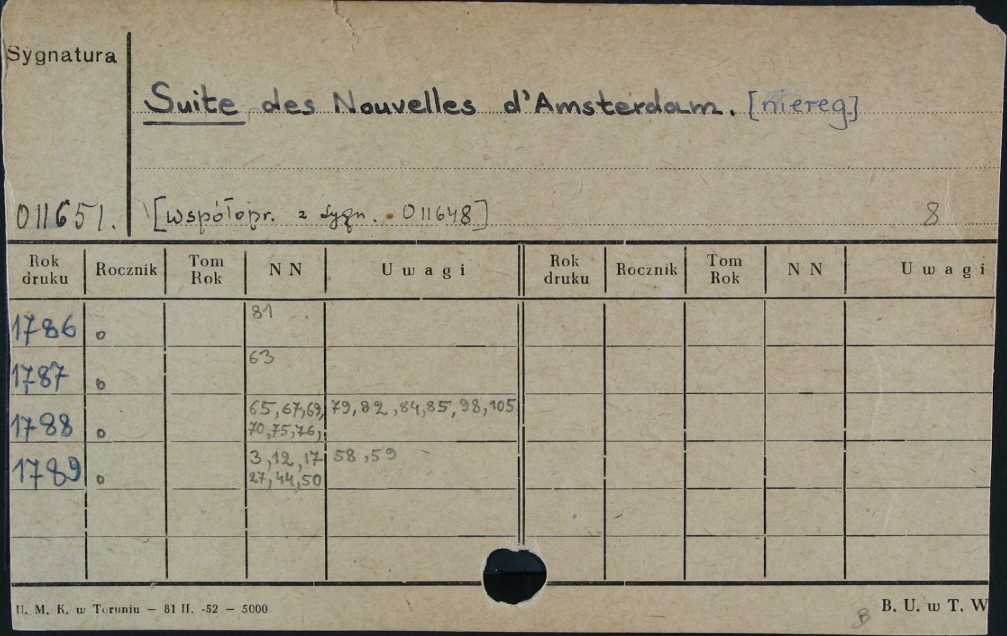 Sygnatura
Suite des Nouvelles d'Amsterdam. [niereg.]
011651. [współopr. z sygn. 011648] 8
Rok druku Rocznik Tom Rok N N Uwagi Rok druku Rocznik Tom Rok N N Uwagi
1786 o 81
1787 o 63
1788 o 65, 67, 69, 79, 82, 84, 85, 98, 105
70, 75, 76,
1789 o 3, 12, 17 58, 59
27, 44, 50
U. M. K. w Toruniu — 81 II. -52 — 5000
B. U. w T. W